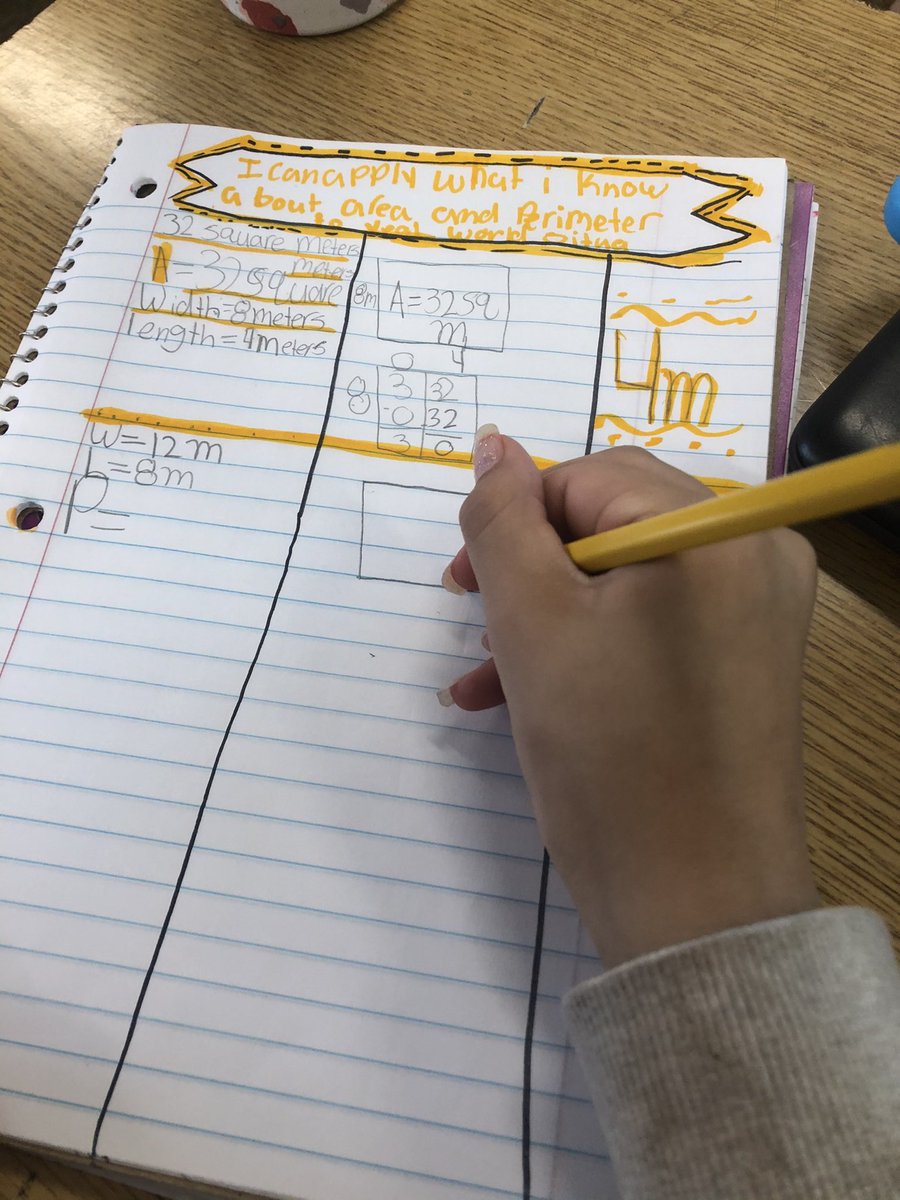 I can apply what i know
a bout area and Perimeter
to real world
32 square meters
A = 32 square meters
Width=8 meters
Length=4 meters
8m
A=32sq
m
0 4
8 3 32
-0 32
3 0
4m
W=12m
L=8m
P=